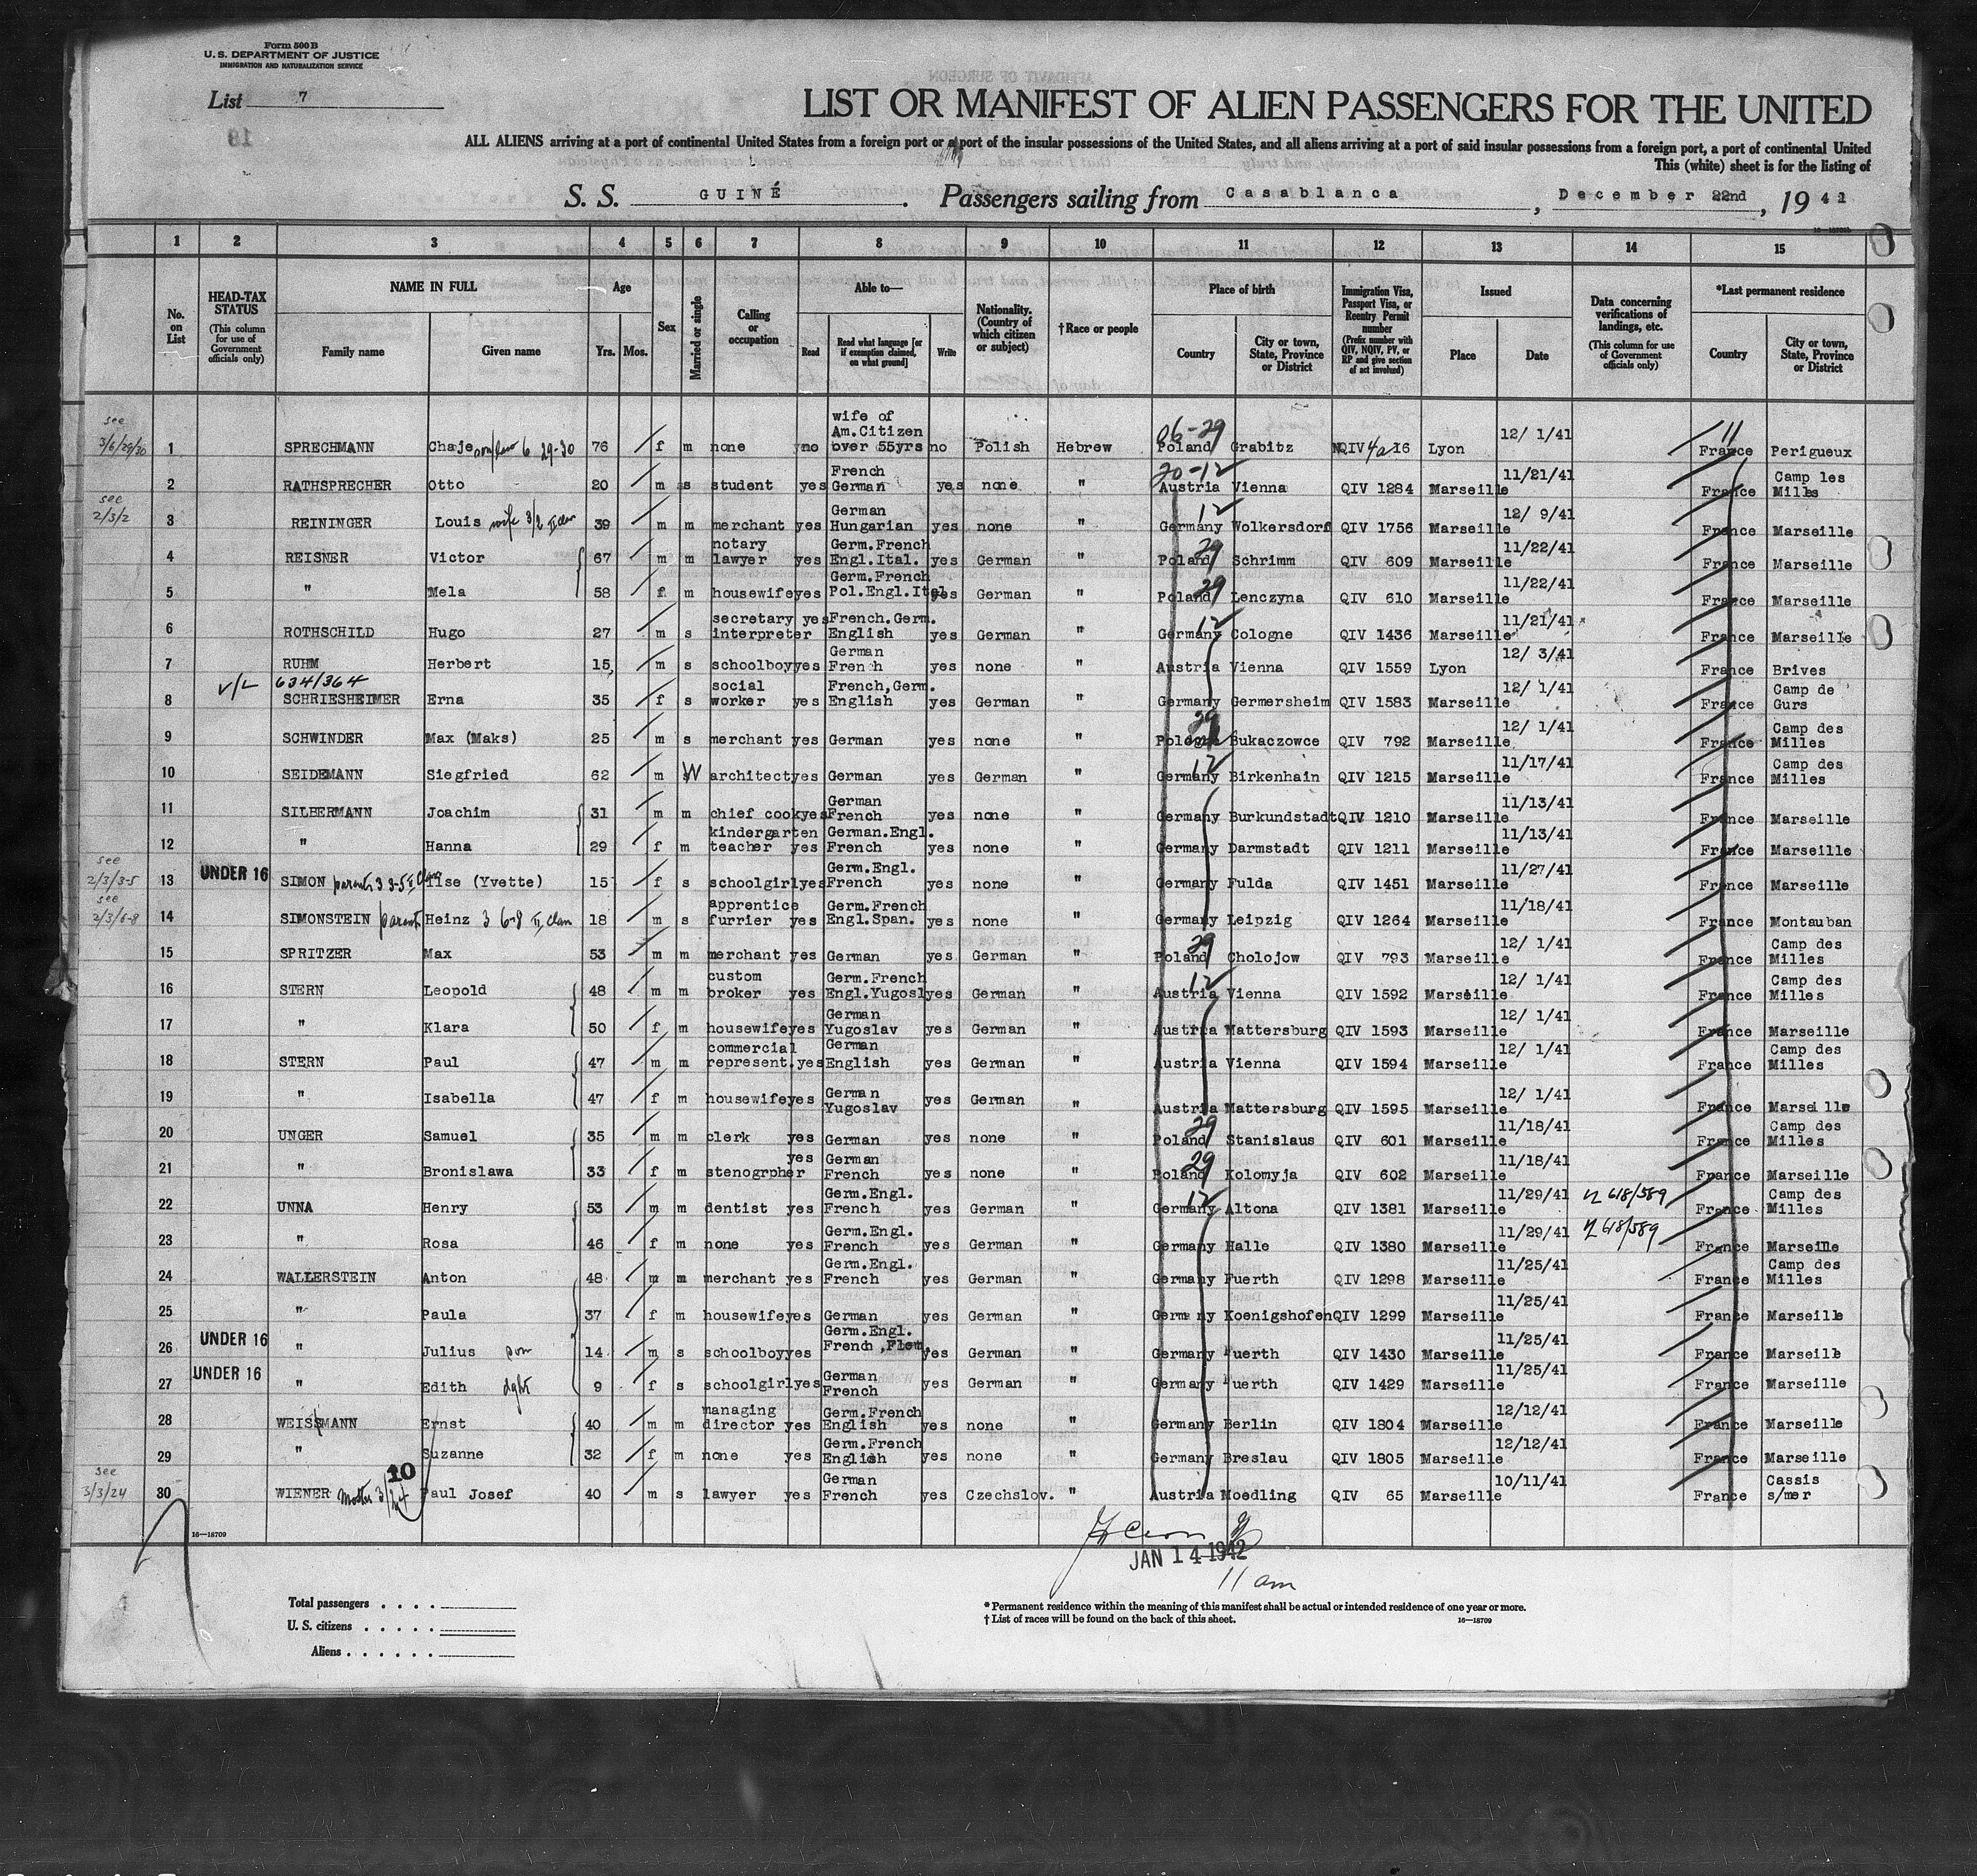 Form 500 B
U. S. DEPARTMENT OF JUSTICE
IMMIGRATION AND NATURALIZATION SERVICE
List 7
LIST OR MANIFEST OF ALIEN PASSENGERS FOR THE UNITED
ALL ALIENS arriving at a port of continental United States from a foreign port or a port of the insular possessions of the United States, and all aliens arriving at a port of said insular possessions from a foreign port, a port of continental United
This (white) sheet is for the listing of
S. S. GUINÉ . Passengers sailing from Casablanca , December 22nd , 19 41
1 2 3 4 5 6 7 8 9 10 11 12 13 14 15
No. on List
HEAD-TAX STATUS (This column for use of Government officials only)
NAME IN FULL Family name Given name
Age Yrs. Mos.
Sex
Married or single
Calling or occupation
Able to— Read Read what language [or if exemption claimed, on what ground] Write
Nationality. (Country of which citizen or subject)
† Race or people
Place of birth Country City or town, State, Province or District
Immigration Visa, Passport Visa, or Reentry Permit number (Prefix number with QIV, NQIV, PV, or RP and give section of act involved)
Issued Place Date
Data concerning verifications of landings, etc. (This column for use of Government officials only)
*Last permanent residence Country City or town, State, Province or District
see 3/6/29/30 1 SPRECHMANN Chaje 6 29-30 76 f m none no wife of Am.Citizen over 55yrs no Polish Hebrew 06-29 Poland Grabitz NQIV 4a 16 Lyon 12/ 1/41 France Perigueux
2 RATHSPRECHER Otto 20 m s student yes French German yes none " 20-12 Austria Vienna QIV 1284 Marseille 11/21/41 France Camp les Milles
see 2/3/2 3 REININGER Louis wife 3/2 II class 39 m m merchant yes German Hungarian yes none " 12 Germany Wolkersdorf QIV 1756 Marseille 12/ 9/41 France Marseille
4 REISNER Victor 67 m m notary lawyer yes Germ.French Engl.Ital. yes German " 29 Poland Schrimm QIV 609 Marseille 11/22/41 France Marseille
5 " Mela 58 f m housewife yes Germ.French Pol.Engl.Ital. yes German " 29 Poland Lenczyna QIV 610 Marseille 11/22/41 France Marseille
6 ROTHSCHILD Hugo 27 m s secretary interpreter yes French.Germ. English yes German " 12 Germany Cologne QIV 1436 Marseille 11/21/41 France Marseille
7 RUHM Herbert 15 m s schoolboy yes German French yes none " Austria Vienna QIV 1559 Lyon 12/ 3/41 France Brives
v/L 634/364
8 SCHRIESHEIMER Erna 35 f s social worker yes French,Germ. English yes German " Germany Germersheim QIV 1583 Marseille 12/ 1/41 France Camp de Gurs
9 SCHWINDER Max (Maks) 25 m s merchant yes German yes none " 29 Pologne Bukaczowce QIV 792 Marseille 12/ 1/41 France Camp des Milles
10 SEIDEMANN Siegfried 62 m W architect yes German yes German " 12 Germany Birkenhain QIV 1215 Marseille 11/17/41 France Camp des Milles
11 SILBERMANN Joachim 31 m m chief cook yes German French yes none " Germany Burkundstadt QIV 1210 Marseille 11/13/41 France Marseille
12 " Hanna 29 f m kindergarten teacher yes German.Engl. French yes none " Germany Darmstadt QIV 1211 Marseille 11/13/41 France Marseille
see 2/3/3-5 13 UNDER 16 SIMON parents 3 3-5 II Class Ilse (Yvette) 15 f s schoolgirl yes Germ.Engl. French yes none " Germany Fulda QIV 1451 Marseille 11/27/41 France Marseille
see 2/3/6-8 14 SIMONSTEIN parents Heinz 3 6-8 II Class 18 m s apprentice furrier yes Germ.French Engl.Span. yes none " Germany Leipzig QIV 1264 Marseille 11/18/41 France Montauban
15 SPRITZER Max 53 m m merchant yes German yes German " 29 Poland Cholojow QIV 793 Marseille 12/ 1/41 France Camp des Milles
16 STERN Leopold 48 m m custom broker yes Germ.French Engl.Yugosl yes German " 12 Austria Vienna QIV 1592 Marseille 12/ 1/41 France Camp des Milles
17 " Klara 50 f m housewife yes German Yugoslav yes German " Austria Mattersburg QIV 1593 Marseille 12/ 1/41 France Marseille
18 STERN Paul 47 m m commercial represent. yes German English yes German " Austria Vienna QIV 1594 Marseille 12/ 1/41 France Camp des Milles
19 " Isabella 47 f m housewife yes German Yugoslav yes German " Austria Mattersburg QIV 1595 Marseille 12/ 1/41 France Marseille
20 UNGER Samuel 35 m m clerk yes German yes none " 29 Poland Stanislaus QIV 601 Marseille 11/18/41 France Camp des Milles
21 " Bronislawa 33 f m stenogrpher yes German French yes none " 29 Poland Kolomyja QIV 602 Marseille 11/18/41 France Marseille
22 UNNA Henry 53 m m dentist yes Germ.Engl. French yes German " 12 Germany Altona QIV 1381 Marseille 11/29/41 618/589 France Camp des Milles
23 " Rosa 46 f m none yes Germ.Engl. French yes German " Germany Halle QIV 1380 Marseille 11/29/41 618/589 France Marseille
24 WALLERSTEIN Anton 48 m m merchant yes Germ.Engl. French yes German " Germany Fuerth QIV 1298 Marseille 11/25/41 France Camp des Milles
25 " Paula 37 f m housewife yes German yes German " Germany Koenigshofen QIV 1299 Marseille 11/25/41 France Marseille
26 UNDER 16 " Julius son 14 m s schoolboy yes Germ.Engl. French,Flem. yes German " Germany Fuerth QIV 1430 Marseille 11/25/41 France Marseille
27 UNDER 16 " Edith dght 9 f s schoolgirl yes German French yes German " Germany Fuerth QIV 1429 Marseille 11/25/41 France Marseille
28 WEISSMANN Ernst 40 m m managing director yes Germ.French English yes none " Germany Berlin QIV 1804 Marseille 12/12/41 France Marseille
29 " Suzanne 32 f m none yes Germ.French English yes none " Germany Breslau QIV 1805 Marseille 12/12/41 France Marseille
see 3/3/24 30 WIENER Mother 3/24 10 Paul Josef 40 m s lawyer yes German French yes Czechslov. " Austria Moedling QIV 65 Marseille 10/11/41 France Cassis s/mer
16—18709
JAN 14 1942
11 am
Total passengers . . . .
U. S. citizens . . . . .
Aliens . . . . . .
* Permanent residence within the meaning of this manifest shall be actual or intended residence of one year or more.
† List of races will be found on the back of this sheet.
16—18709